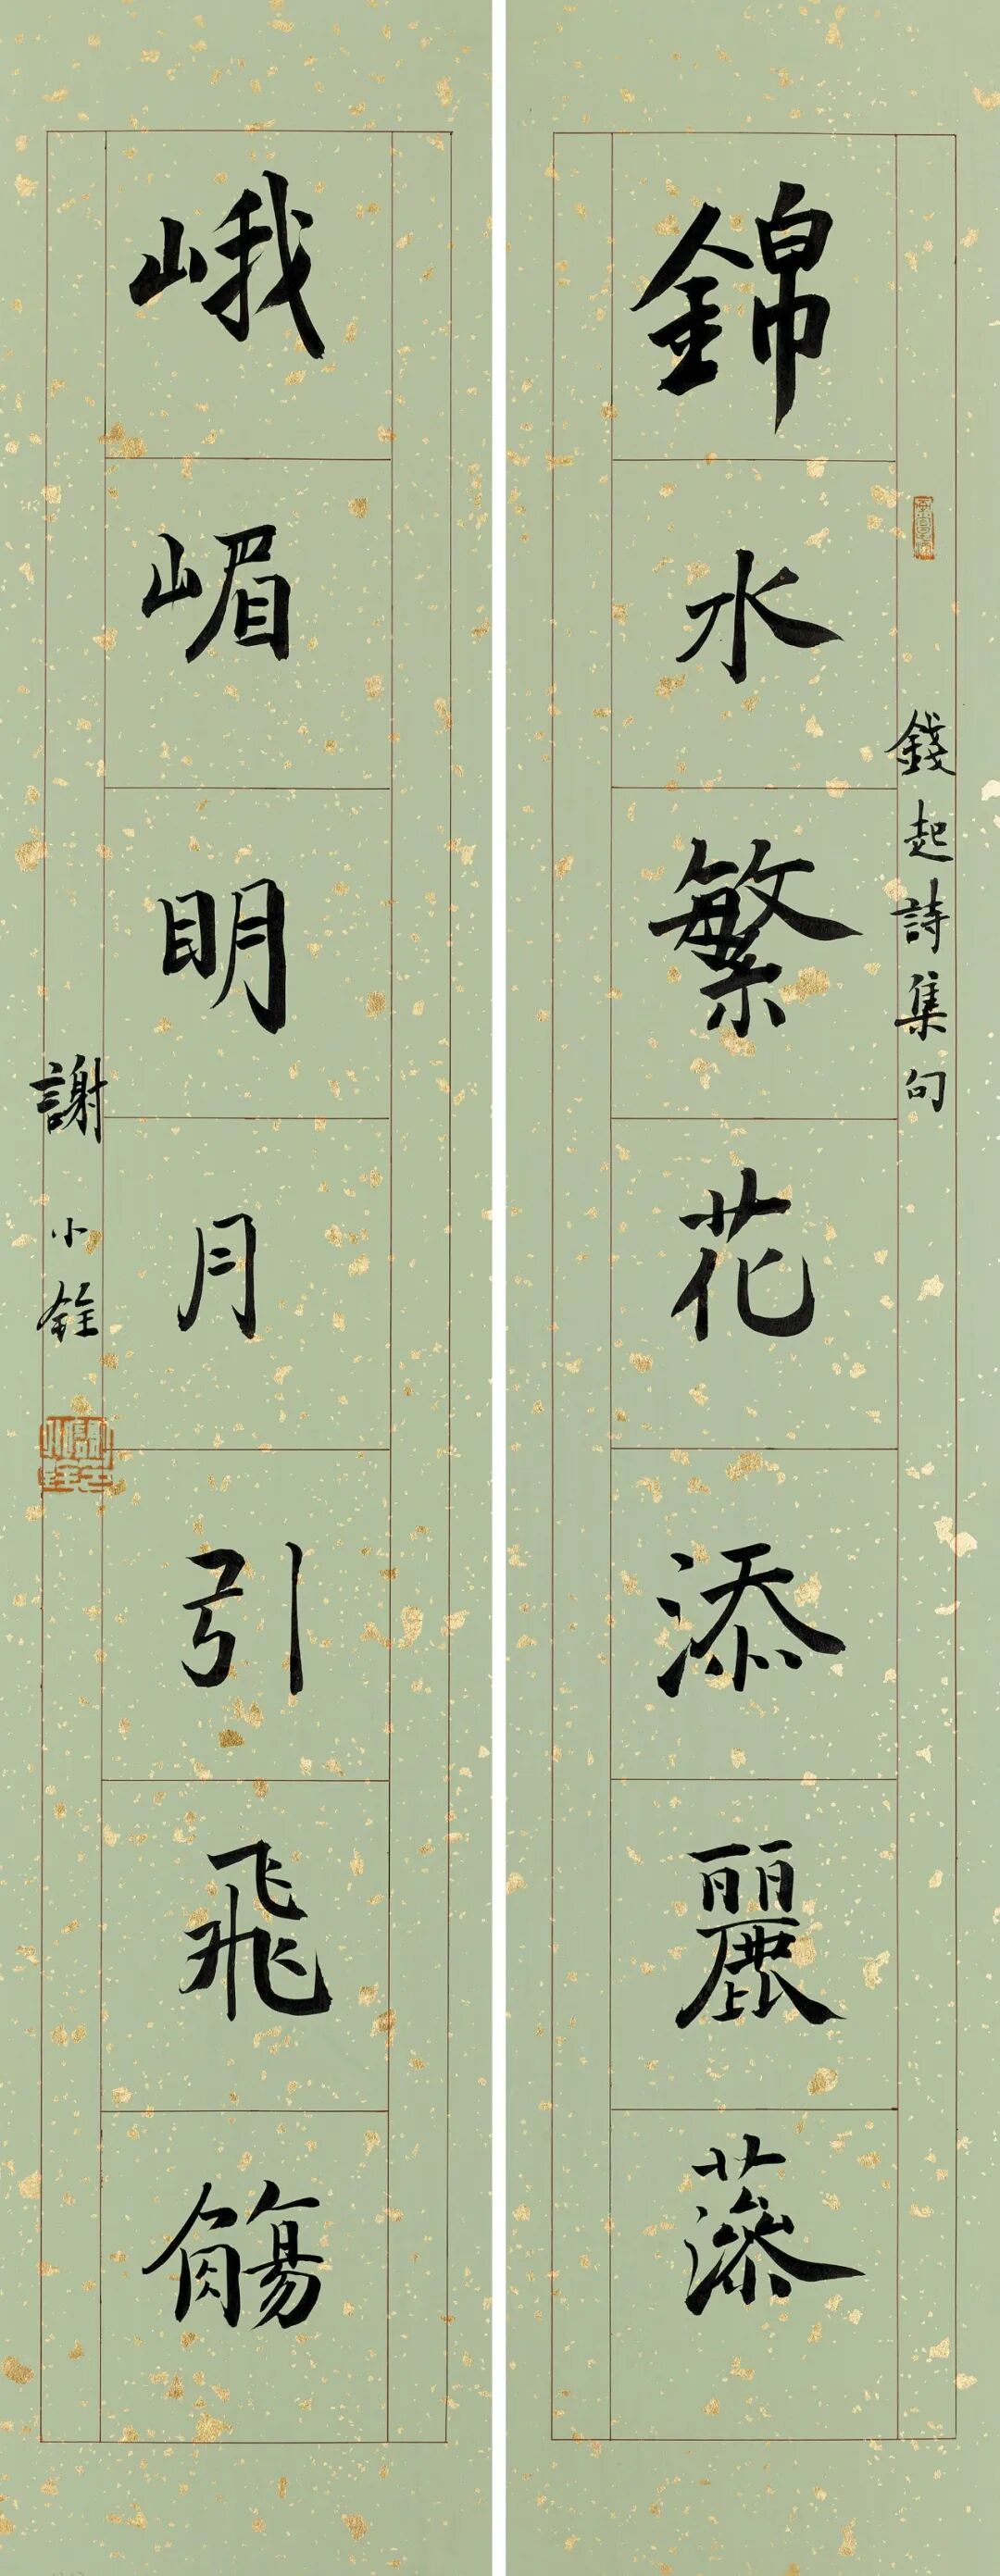 錢起詩集句
錦水繁花添麗藻
峨嵋明月引飛觴
謝小銓